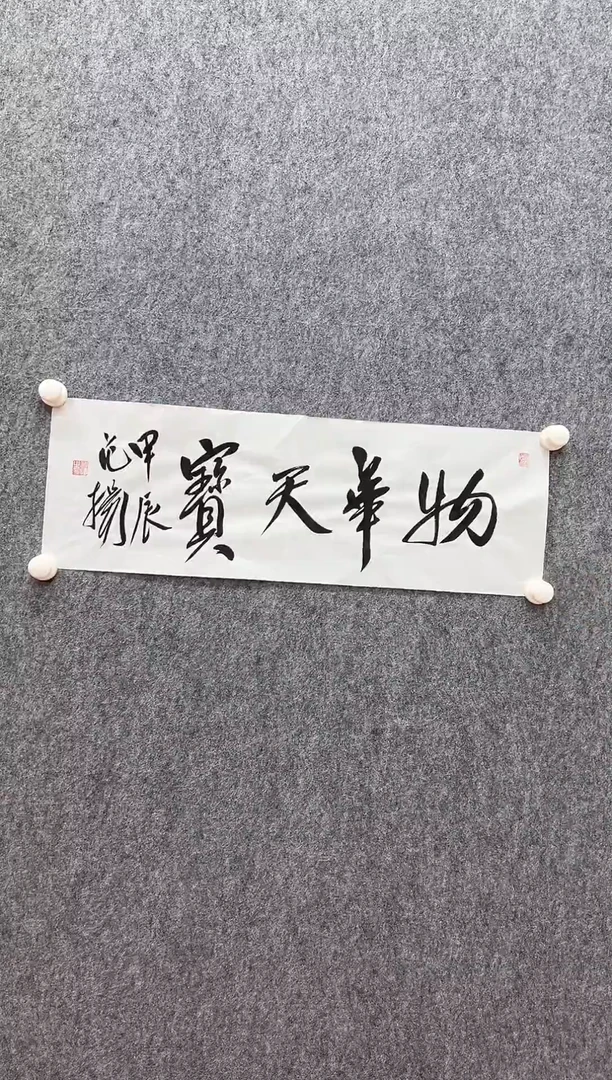 物華天寶
甲辰